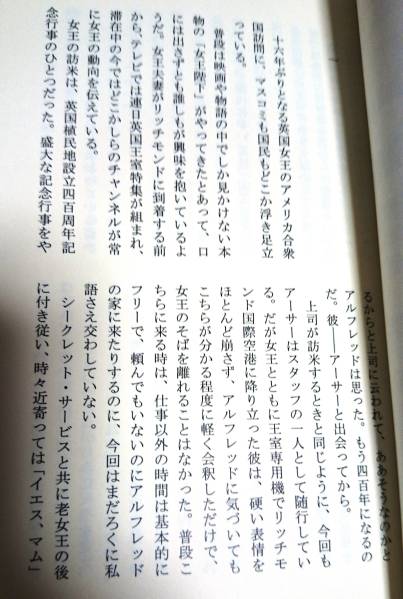 十六年ぶりとなる英国女王のアメリカ合衆
国訪問に、マスコミも国民もどこか浮き足立
っている。
普段は映画や物語の中でしか見かけない本
物の「女王陛下」がやってきたとあって、口
には出さずとも誰しもが興味を抱いているよ
うだ。女王夫妻がリッチモンドに到着する前
から、テレビでは連日英国王室特集が組まれ、
滞在中の今ではどこかしらのチャンネルが常
に女王の動向を伝えている。
女王の訪米は、英国植民地設立四百周年記
念行事のひとつだった。盛大な記念行事をや
るからと上司に云われて、ああそうなのかと
アルフレッドは思った。もう四百年になるの
だ。彼――アーサーと出会ってから。
上司が訪米するときと同じように、今回も
アーサーはスタッフの一人として随行してい
る。だが女王とともに王室専用機でリッチモ
ンド国際空港に降り立った彼は、硬い表情を
ほとんど崩さず、アルフレッドに気づいても
こちらが分かる程度に軽く会釈しただけで、
女王のそばを離れることはなかった。普段こ
ちらに来る時は、仕事以外の時間は基本的に
フリーで、頼んでもいないのにアルフレッド
の家に来たりするのに、今回はまだろくに私
語さえ交わしていない。
シークレット・サービスと共に老女王の後
に付き従い、時々近寄っては「イエス、マム」